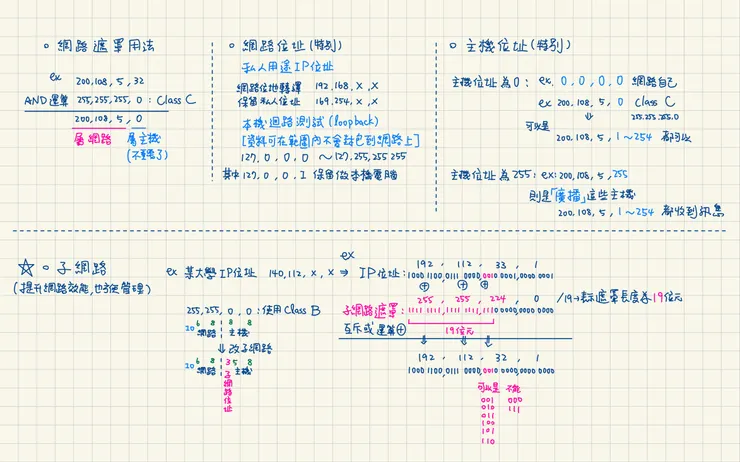 網路遮罩用法
ex 200,108,5,32
AND運算 255,255,255,0 : Class C
200,108,5,0
屬網路 屬主機
(不重要了)
網路位址(特別)
私人用途IP位址
網路位址轉譯 192,168,X,X
保留私人位址 169,254,X,X
本機迴路測試(loopback)
[資料可在範圍內不會封包到網路上]
127,0,0,0 ～127,255,255,255
其中127,0,0,1 保留做本機電腦
主機位址(特別)
主機位址為0: ex. 0,0,0,0 網路自己
ex 200,108,5,0 Class C
⇓ 255.255.255.0
可以是 200,108,5,1～254 都可以
主機位址為255: ex: 200,108,5,255
則是「廣播」這些主機
200,108,5,1～254 都收到訊息
☆。子網路
(提升網路效能,也方便管理)
ex 某大學IP位址 140,112,X,X ⇒
255,255,0,0 : 使用Class B
6 8 8 8
10 網路 主機
⇓ 改子網路
6 8 3 5 8
10 網路 主機
子網路位址
ex
192 , 112 , 33 , 1
IP位址:
⊕ ⊕ ⊕
255 , 255 , 224 , 0
子網路遮罩: 1111 1111,1111 1111,1110 0000,0000 0000
/19→表示遮罩長度為19位元
19位元
互斥或運算⊕
192 , 112 , 32 , 1
可以是 不能
001 000
010 111
011
100
101
110